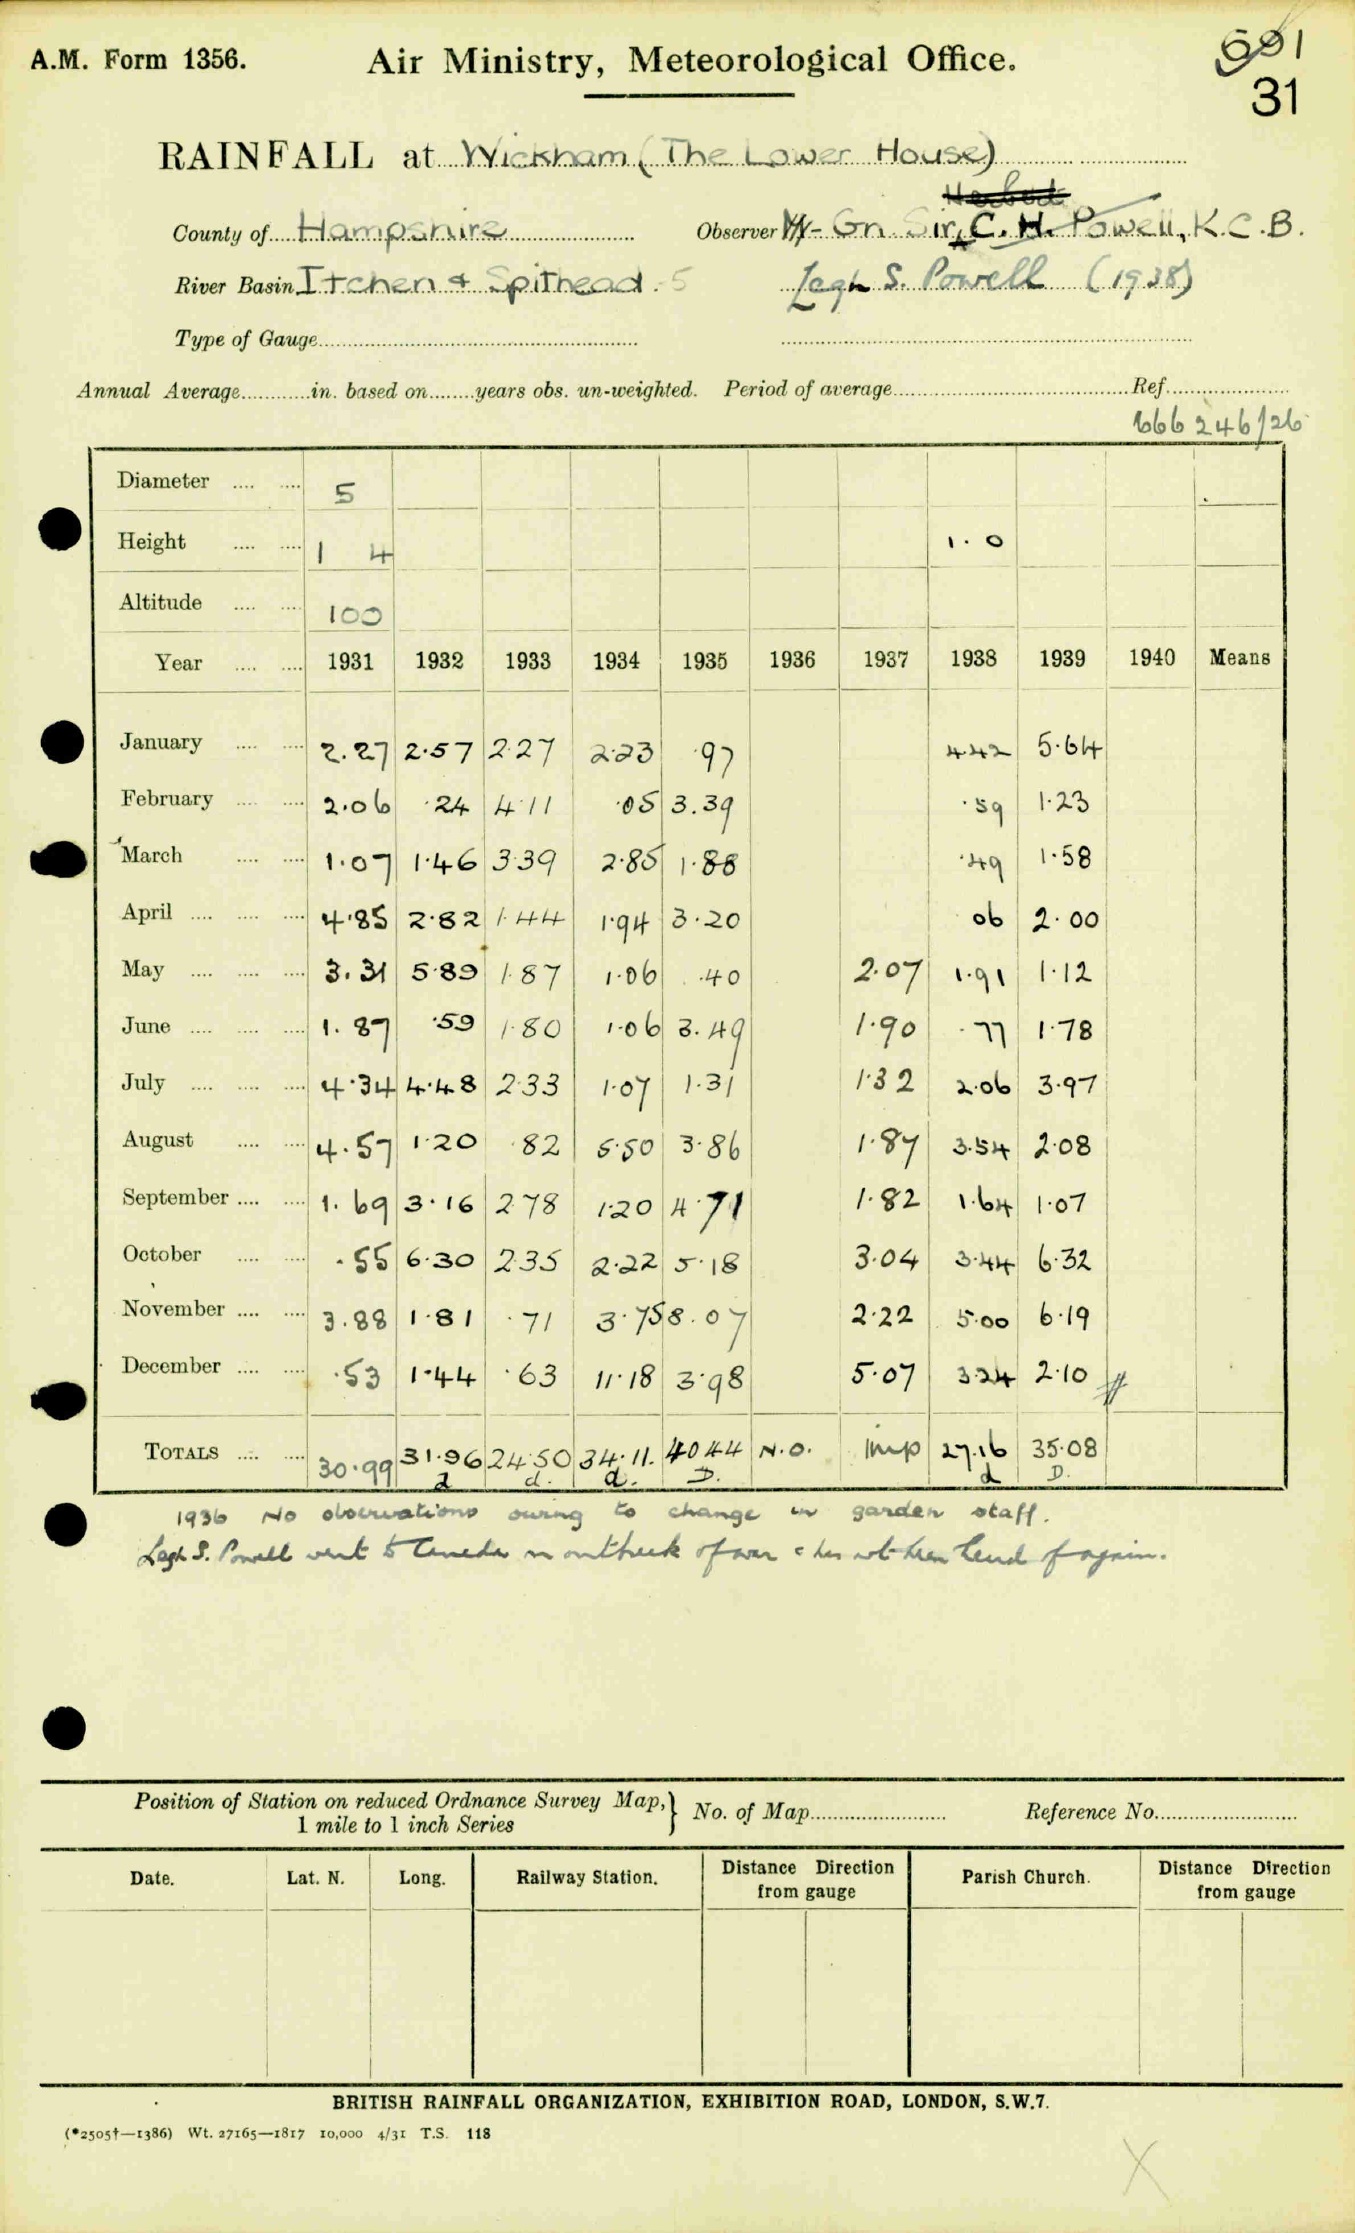 A.M. Form 1356. Air Ministry, Meteorological Office. 601
31
RAINFALL at Wickham (The Lower House)
County of Hampshire Observer M- Gn Sir C. H. Powell, K.C.B.
River Basin Itchen & Spithead. 5 Legh S. Powell (1938)
Type of Gauge
Annual Average in. based on years obs. un-weighted. Period of average Ref.
666 246/26
Diameter 5
Height 1 4 1.0
Altitude 100
Year 1931 1932 1933 1934 1935 1936 1937 1938 1939 1940 Means
January 2.27 2.57 2.27 2.23 .97 4.42 5.64
February 2.06 .24 4.11 .05 3.39 .59 1.23
March 1.07 1.46 3.39 2.85 1.88 .49 1.58
April 4.85 2.82 1.44 1.94 3.20 06 2.00
May 3.31 5.89 1.87 1.06 .40 2.07 1.91 1.12
June 1.87 .59 1.80 1.06 3.49 1.90 .77 1.78
July 4.34 4.48 2.33 1.07 1.31 1.32 2.06 3.97
August 4.57 1.20 .82 5.50 3.86 1.87 3.54 2.08
September 1.69 3.16 2.78 1.20 4.71 1.82 1.64 1.07
October .55 6.30 2.35 2.22 5.18 3.04 3.44 6.32
November 3.88 1.81 .71 3.75 8.07 2.22 5.00 6.19
December .53 1.44 .63 11.18 3.98 5.07 3.24 2.10
TOTALS 30.99 31.96 24.50 34.11. 40.44 N.O. Imp 27.16 35.08
d d. d. D. d D.
1936 No observations owing to change in garden staff.
Legh S. Powell went to Canada on outbreak of war & has not been heard of again.
Position of Station on reduced Ordnance Survey Map, No. of Map Reference No.
1 mile to 1 inch Series
Date. Lat. N. Long. Railway Station. Distance Direction from gauge Parish Church. Distance Direction from gauge
BRITISH RAINFALL ORGANIZATION, EXHIBITION ROAD, LONDON, S.W.7.
(*2505†—1386) Wt. 27165—1817 10,000 4/31 T.S. 118
X